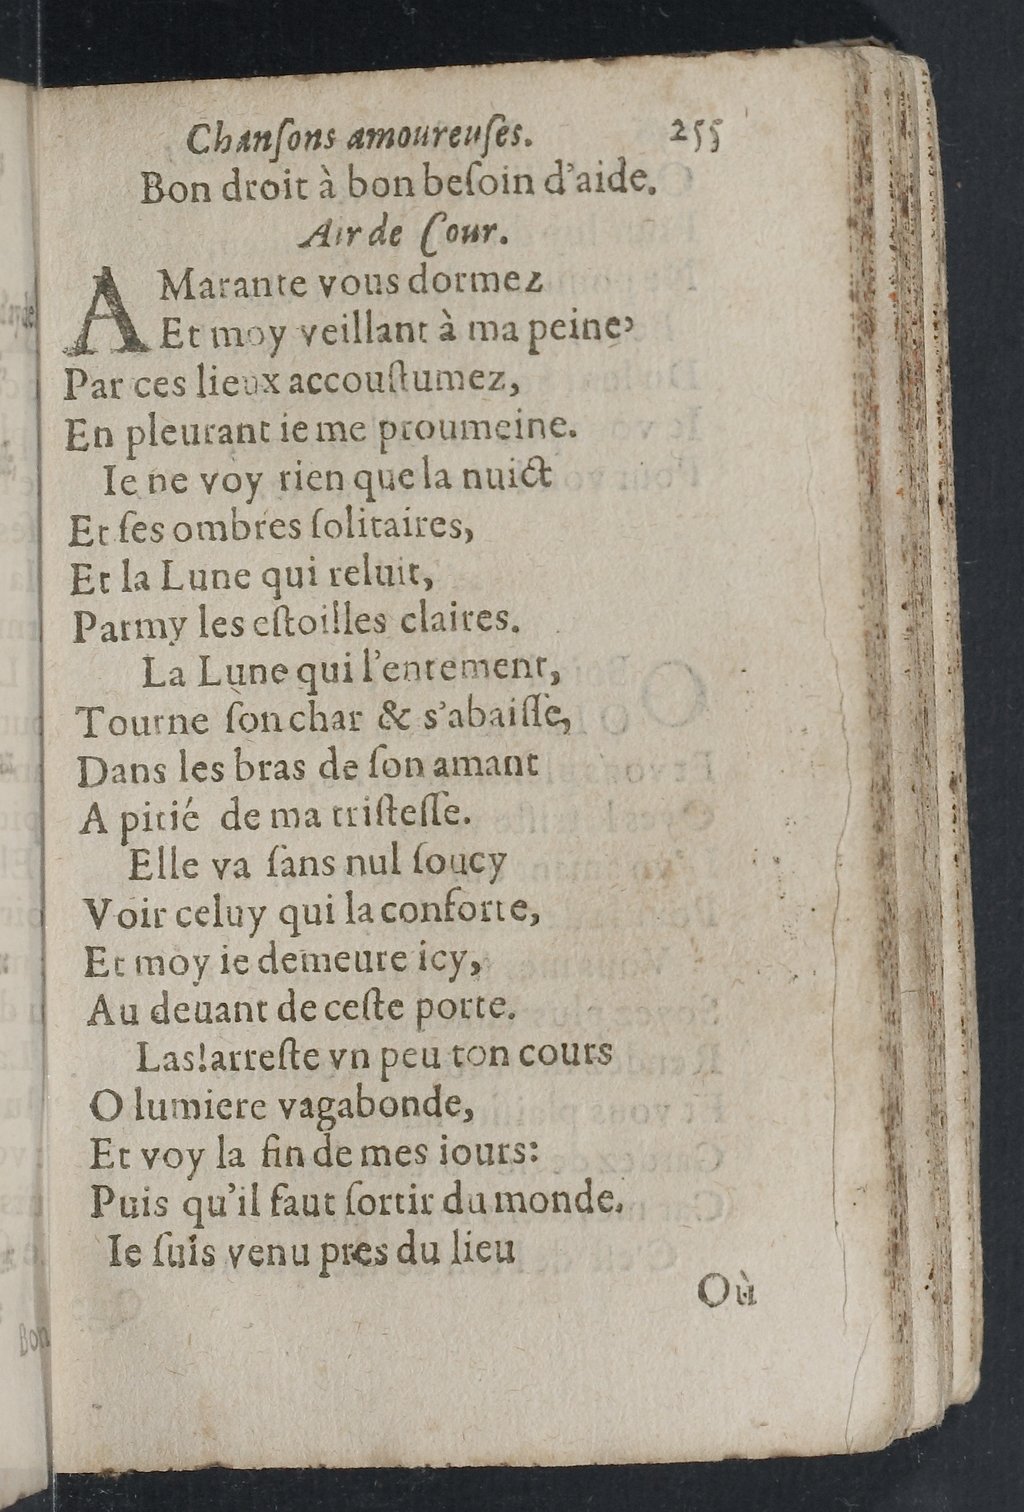 Chanſons amoureuſes. 255
Bon droit à bon beſoin d'aide.
Air de Cour.
AMarante vous dormez
Et moy veillant à ma peine,
Par ces lieux accouſtumez,
En pleurant ie me proumeine.
Ie ne voy rien que la nuict
Et ſes ombres ſolitaires,
Et la Lune qui reluit,
Parmy les eſtoilles claires.
La Lune qui l'entement,
Tourne ſon char & s'abaiſſe,
Dans les bras de ſon amant
A pitié de ma triſteſſe.
Elle va ſans nul ſoucy
Voir celuy qui la conforte,
Et moy ie demeure icy,
Au deuant de ceſte porte.
Las! arreſte vn peu ton cours
O lumiere vagabonde,
Et voy la fin de mes iours:
Puis qu'il faut ſortir du monde.
Ie ſuis venu pres du lieu
Où
Bon